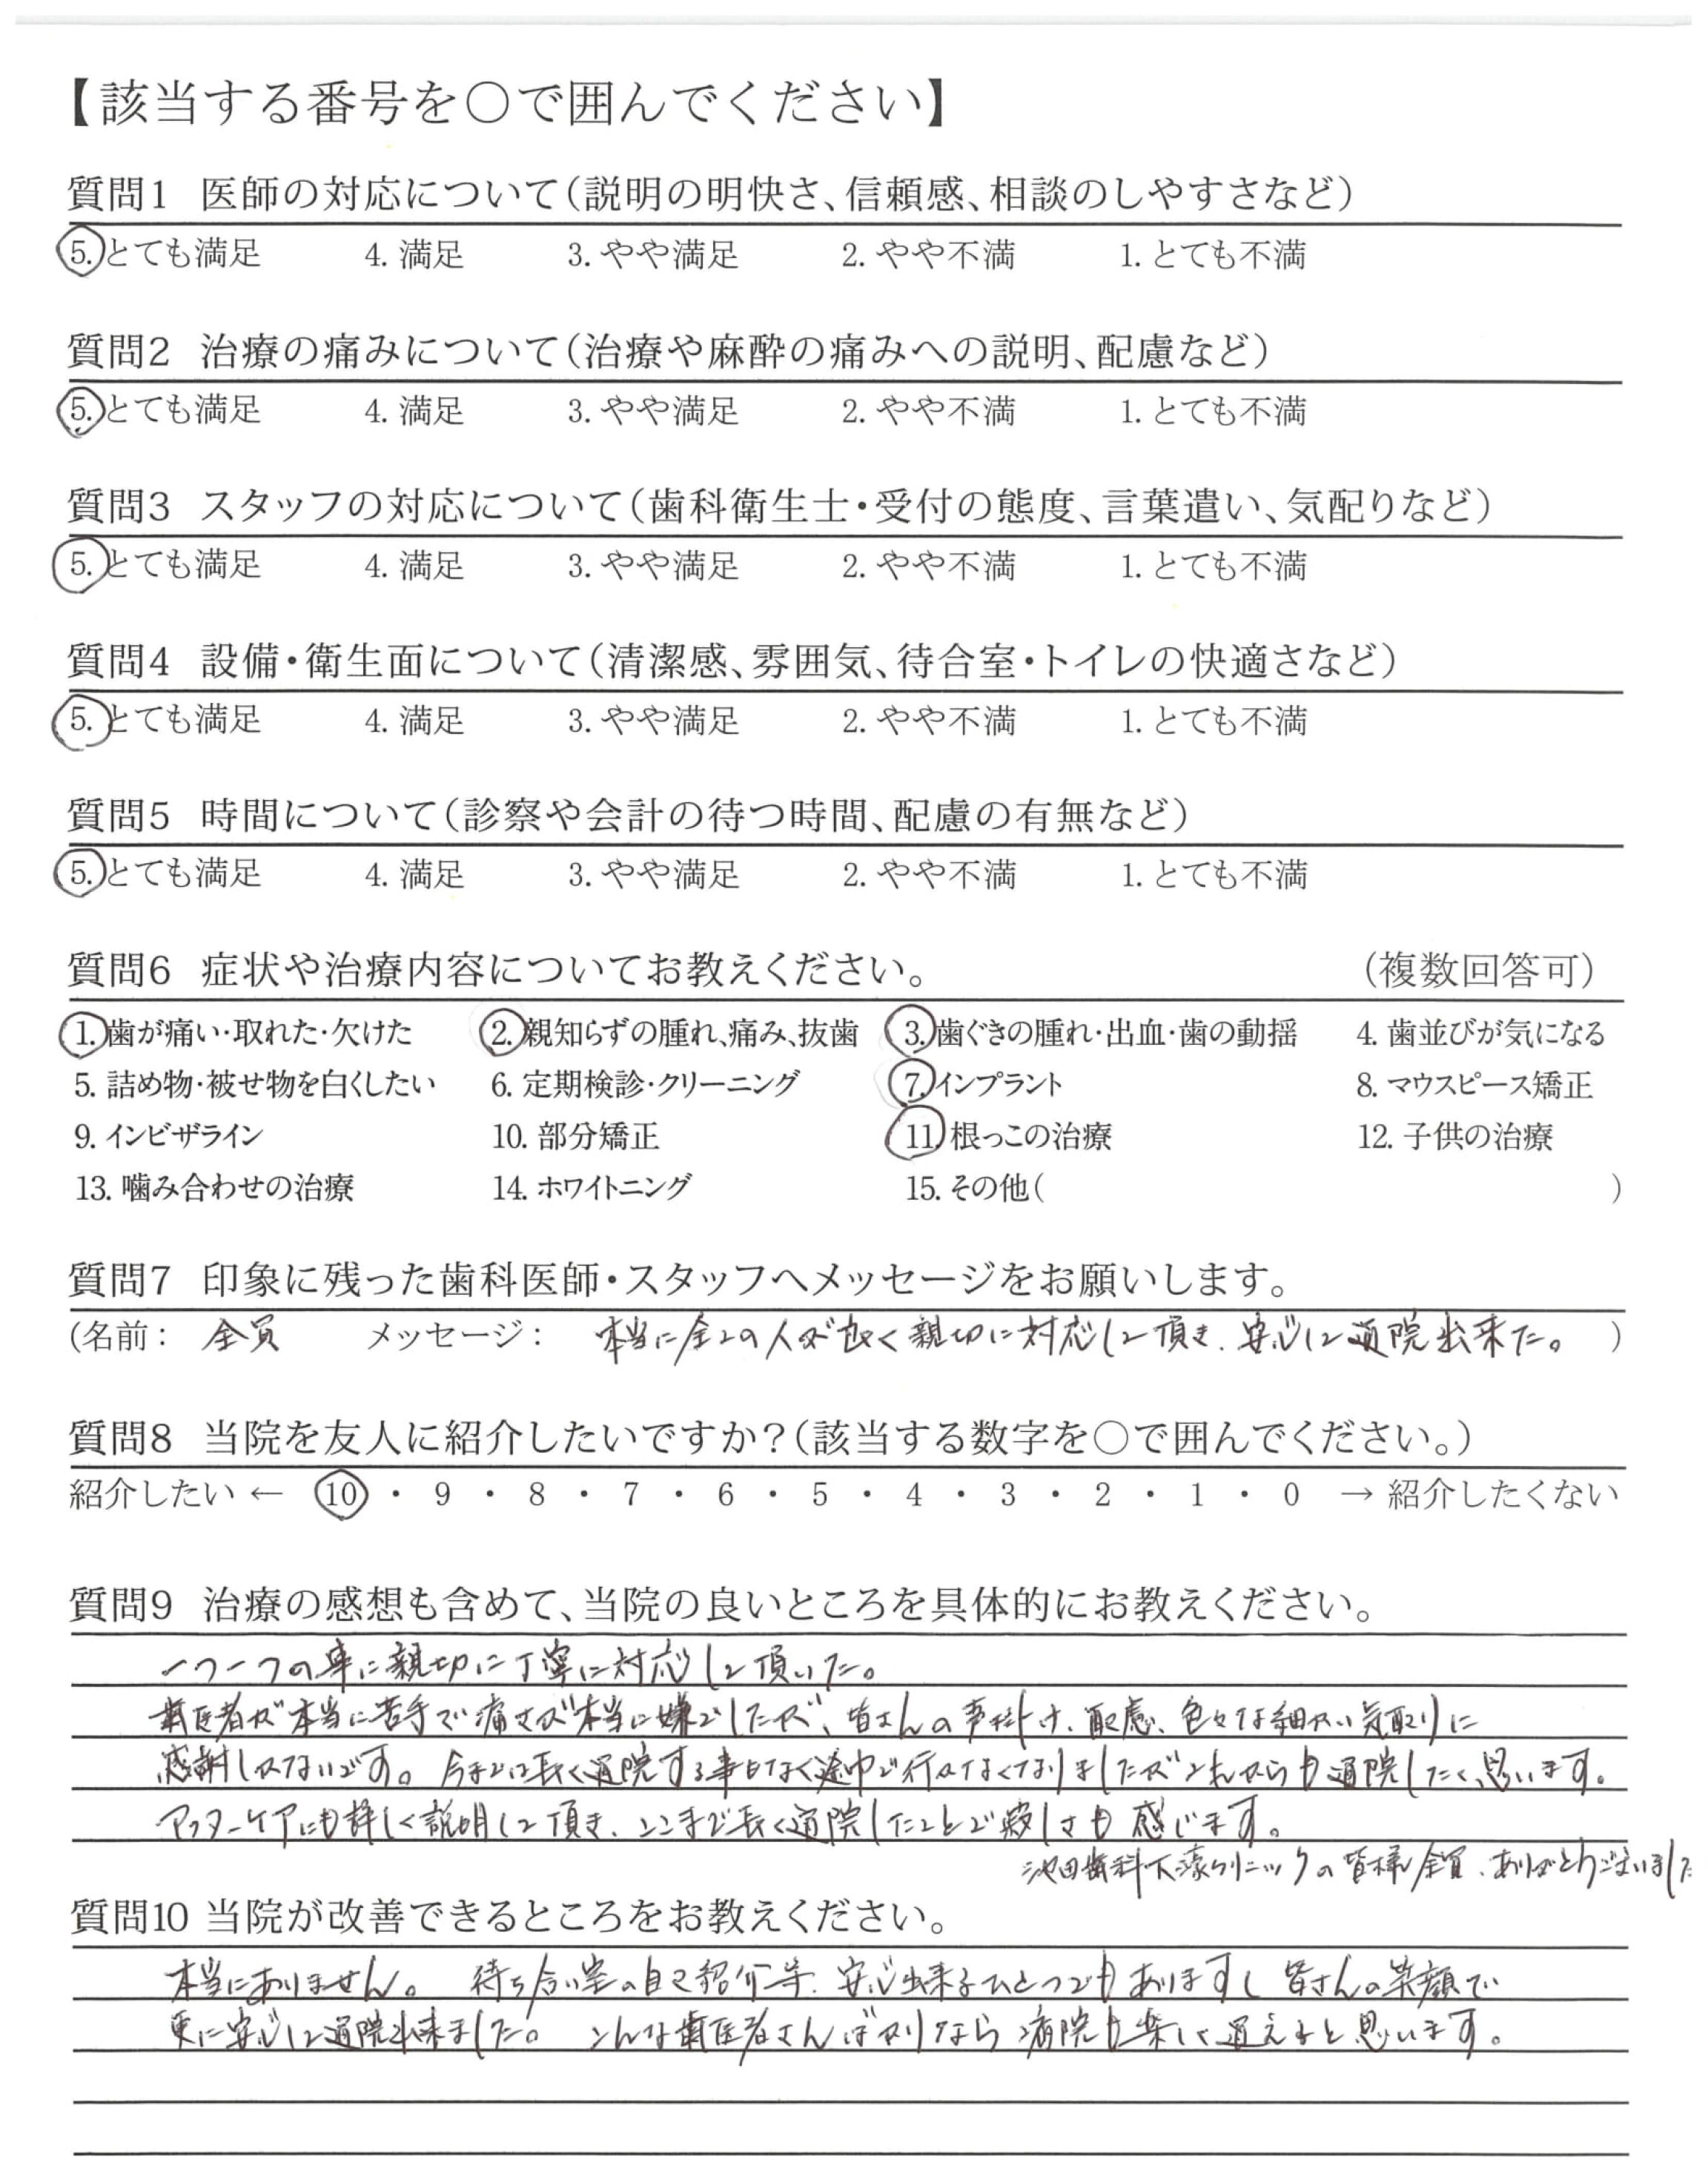 【該当する番号を○で囲んでください】
質問1 医師の対応について(説明の明快さ、信頼感、相談のしやすさなど)
5. とても満足 4. 満足 3. やや満足 2. やや不満 1. とても不満
質問2 治療の痛みについて(治療や麻酔の痛みへの説明、配慮など)
5. とても満足 4. 満足 3. やや満足 2. やや不満 1. とても不満
質問3 スタッフの対応について(歯科衛生士・受付の態度、言葉遣い、気配りなど)
5. とても満足 4. 満足 3. やや満足 2. やや不満 1. とても不満
質問4 設備・衛生面について(清潔感、雰囲気、待合室・トイレの快適さなど)
5. とても満足 4. 満足 3. やや満足 2. やや不満 1. とても不満
質問5 時間について(診察や会計の待つ時間、配慮の有無など)
5. とても満足 4. 満足 3. やや満足 2. やや不満 1. とても不満
質問6 症状や治療内容についてお教えください。 (複数回答可)
1. 歯が痛い・取れた・欠けた 2. 親知らずの腫れ、痛み、抜歯 3. 歯ぐきの腫れ・出血・歯の動揺 4. 歯並びが気になる
5. 詰め物・被せ物を白くしたい 6. 定期検診・クリーニング 7. インプラント 8. マウスピース矯正
9. インビザライン 10. 部分矯正 11. 根っこの治療 12. 子供の治療
13. 噛み合わせの治療 14. ホワイトニング 15. その他( )
質問7 印象に残った歯科医師・スタッフへメッセージをお願いします。
(名前: 全員 メッセージ: 本当に全ての人が良く親切に対応して頂き、安心して通院出来た。 )
質問8 当院を友人に紹介したいですか?(該当する数字を○で囲んでください。)
紹介したい ← 10 ・ 9 ・ 8 ・ 7 ・ 6 ・ 5 ・ 4 ・ 3 ・ 2 ・ 1 ・ 0 → 紹介したくない
質問9 治療の感想も含めて、当院の良いところを具体的にお教えください。
一つ一つの事に親切に丁寧に対応して頂いた。
歯医者が本当に苦手で痛さが本当に嫌でしたが、皆さんの声掛け、配慮、色々な細かい気配りに
感謝しかないです。今までは長く通院する事もなく途中で行かなくなりましたがこれからも通院したく思います。
アフターケアにも詳しく説明して頂き、ここまで長く通院したことで寂しさも感じます。
池田歯科大濠クリニックの皆様全員、ありがとうございました
質問10 当院が改善できるところをお教えください。
本当にありません。 待ち合い室の自己紹介等、安心出来るひとつでもありますし皆さんの笑顔で
更に安心して通院出来ました。 こんな歯医者さんばかりなら病院も楽しく通えると思います。